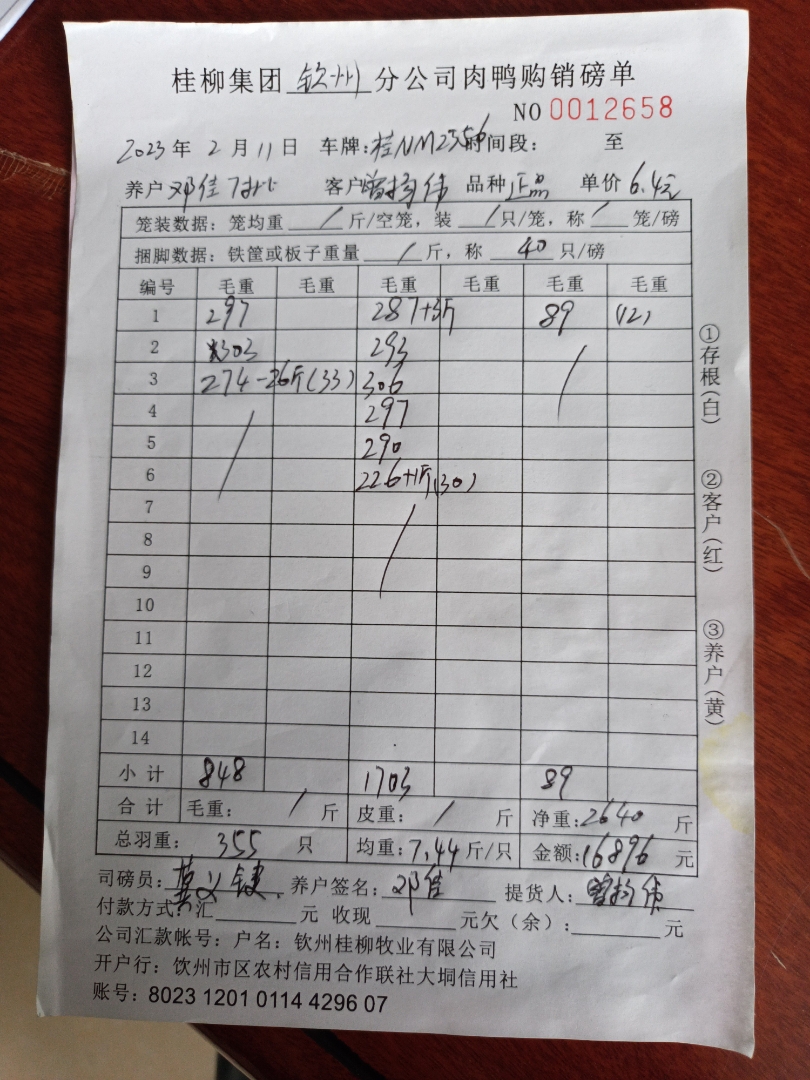 桂柳集团 钦州 分公司肉鸭购销磅单
NO 0012658
2023 年 2 月 11 日 车牌:桂NM2356 时间段: 至
养户 邓佳 客户 品种 正品 单价 6.4元
笼装数据:笼均重 / 斤/空笼,装 / 只/笼,称 / 笼/磅
捆脚数据:铁筐或板子重量 / 斤,称 40 只/磅
编号 毛重 毛重 毛重 毛重 毛重 毛重
1 297 287+3斤 89 (12)
2 303 293 /
3 274-26斤(33) 306
4 / 297
5 290
6 226+1斤(30)
7 /
8
9
10
11
12
13
14
小计 848 1703 89
合计 毛重: / 斤 皮重: / 斤 净重:2640 斤
总羽重: 355 只 均重:7.44斤/只 金额:16896 元
司磅员: 养户签名:邓佳 提货人:
付款方式:汇 元 收现 元欠(余): 元
公司汇款帐号:户名:钦州桂柳牧业有限公司
开户行:饮州市区农村信用合作联社大垌信用社
账号:8023 1201 0114 4296 07
①存根(白) ②客户(红) ③养户(黄)